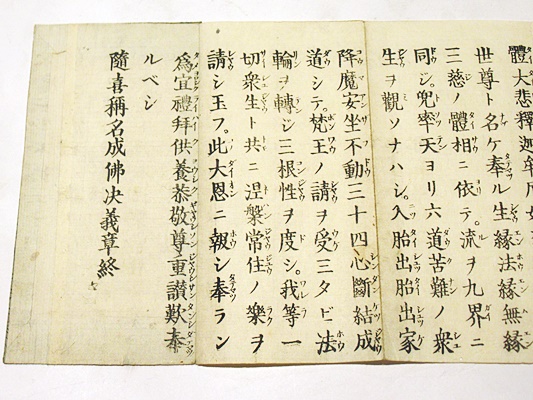 體大悲釋迦牟尼
世尊ト名ケ奉ル生緣法緣無緣
三慈ノ體相ニ依テ。流ヲ九界ニ
同シ。兜率天ヨリ六道苦難ノ衆
生ヲ觀ソナハシ。入胎出胎出家
降魔安坐不動三十四心斷結成
道シテ。梵王ノ請ヲ受三タビ法
輪ヲ轉ジ三根性ヲ度シ。我等一
切衆生ト共ニ涅槃常住ノ樂ヲ
請シ玉フ。此大恩ニ報シ奉ラン
爲宜禮拜供養恭敬尊重讃歎奉
ルベシ
隨喜稱名成佛决義章終